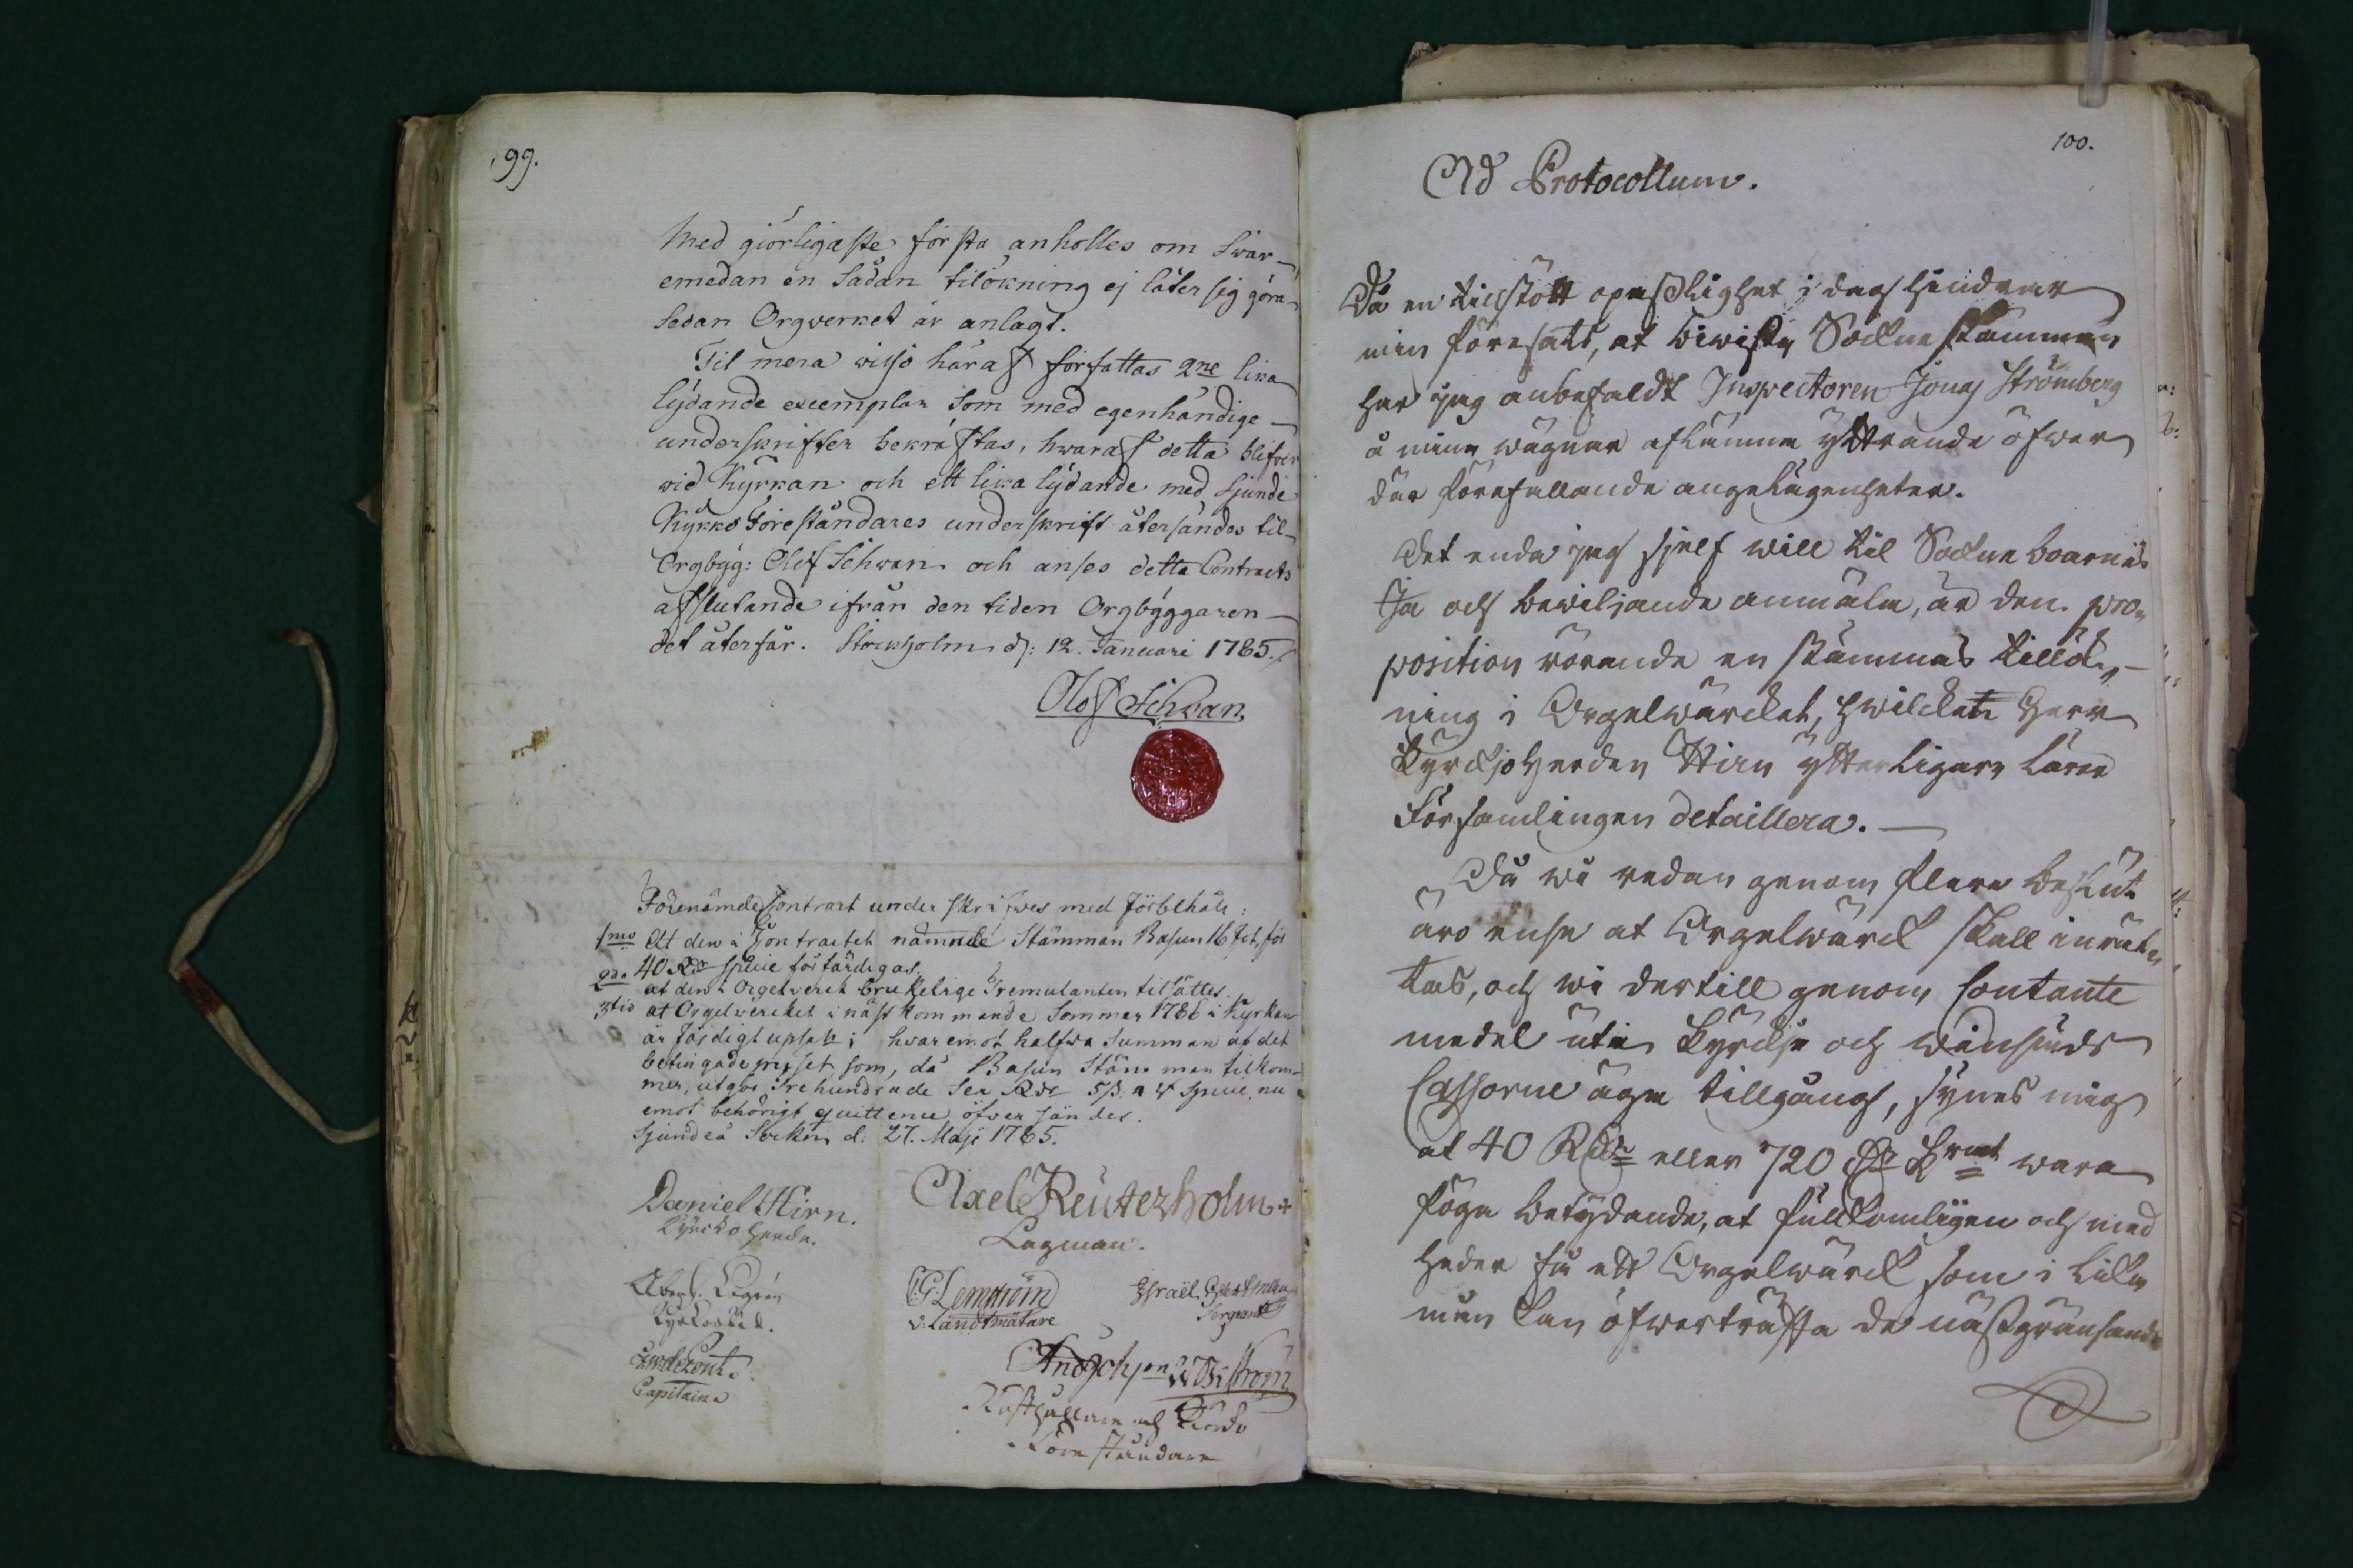 99.
Med giörligaste första anholles om Svar
emedan en Sådan tilökning ej låter sig göra
Sedan Orgverket är anlagt.
Til mera wisso häraf författas 2ne lika
lydande exemplar Som med egenhändige
underskrifter bekräftas, hwaraf detta blifver
vid Kyrkan och ett lika lydande med Sjunde
Kyrko Föreståndares underskrift återsändes til
Orgbyg: Olof Schwan och anses detta Contracts
afslutande ifrån den tiden Orgbyggaren
det återfår. Stockholm d: 12. Januari 1785.
Olof Schwan
Förenämde Contract under skrifwes med förbehåll:
1mo At den i Contractet nämnde Stämman Basun 16 fot, för
40 Rdr Specie förfärdigas.
2do at den i Orgelverck brukelige Tremulanten tilsättes.
3tio at Orgelwercket i näst kommande Sommar 1786 i Kyrkan
är färdigt upsatt; hvaremot halfva Summan af det
betingade priset som, då Basun Stäm man tilkom-
mer, utgör Trehundrade Sex Rdr Specie, nu
emot behörigt quittence öfver sändes.
Sjundeå Sockn d: 27. Maji 1785.
Daniel Hirn.
Kyrckoherde.
Axel Reuterholm
Lagman.
CG Lemström
v. Landtmätare
Israël
Sergeant
Capitaine
And Johan Wiström
Rusthållare och Kyrko
Föreståndare
100.
Ad Protocollum.
Då en tillstött opasslighet i dag hindrar
min föresats, at biwista Sockne stämman
har jag anbefaldt Inspectoren Jonas Strömberg
å mina wägnar aflämna yttrande öfwer
der förefallande angelägenheter.
Det enda jag sjelf will til Sockne boarnas
Ja och bewiljande anmäla, är den pro-
position rörande en stämmas tillök-
ning i Orgelwärcket, hwilcket Herr
Kyrckjoherden Hirn ytterligare lärer
Församlingen detaillera.
Då wi redan genom flere beslut
äro ense at Orgelwärck skall inrät-
tas, och wi dertill genom Contante
medel uti Kyrckje och winhuds
Cassorne äga tillgång, synes mig
at 40 Rdr eller 720 Dr Kmt wara
föga betydande, at fullkomligen och med
heder få ett Orgelwärck som i lika
mån kan öfwerträffa de näst gränsande